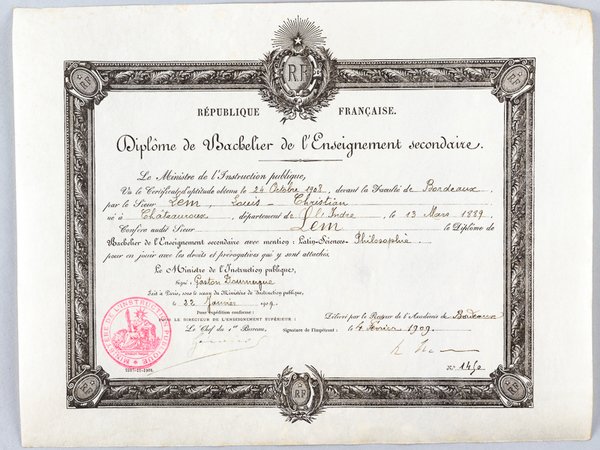 RF
RÉPUBLIQUE FRANÇAISE.
Diplôme de Bachelier de l'Enseignement secondaire.
Le Ministre de l'Instruction publique,
Vu le Certificat d'aptitude obtenu le 24 Octobre 1908, devant la Faculté de Bordeaux,
par le Sieur Lem, Louis-Christian
né à Châteauroux, département de l'Indre, le 13 Mars 1889
Confère audit Sieur Lem le Diplôme de
Bachelier de l'Enseignement secondaire avec mention : Latin-Sciences-Philosophie
pour en jouir avec les droits et prérogatives qui y sont attachés.
Le Ministre de l'Instruction publique,
Signé : Gaston Doumergue
Fait à Paris, sous le sceau du Ministère de l'Instruction publique,
le 22 Janvier 1909.
Pour expédition conforme :
LE DIRECTEUR DE L'ENSEIGNEMENT SUPÉRIEUR :
Le Chef du 1er Bureau,
Signature de l'Impétrant :
Délivré par le Recteur de l'Académie de Bordeaux
le 4 Février 1909.
MINISTÈRE DE L'INSTRUCTION PUBLIQUE
N°
RF